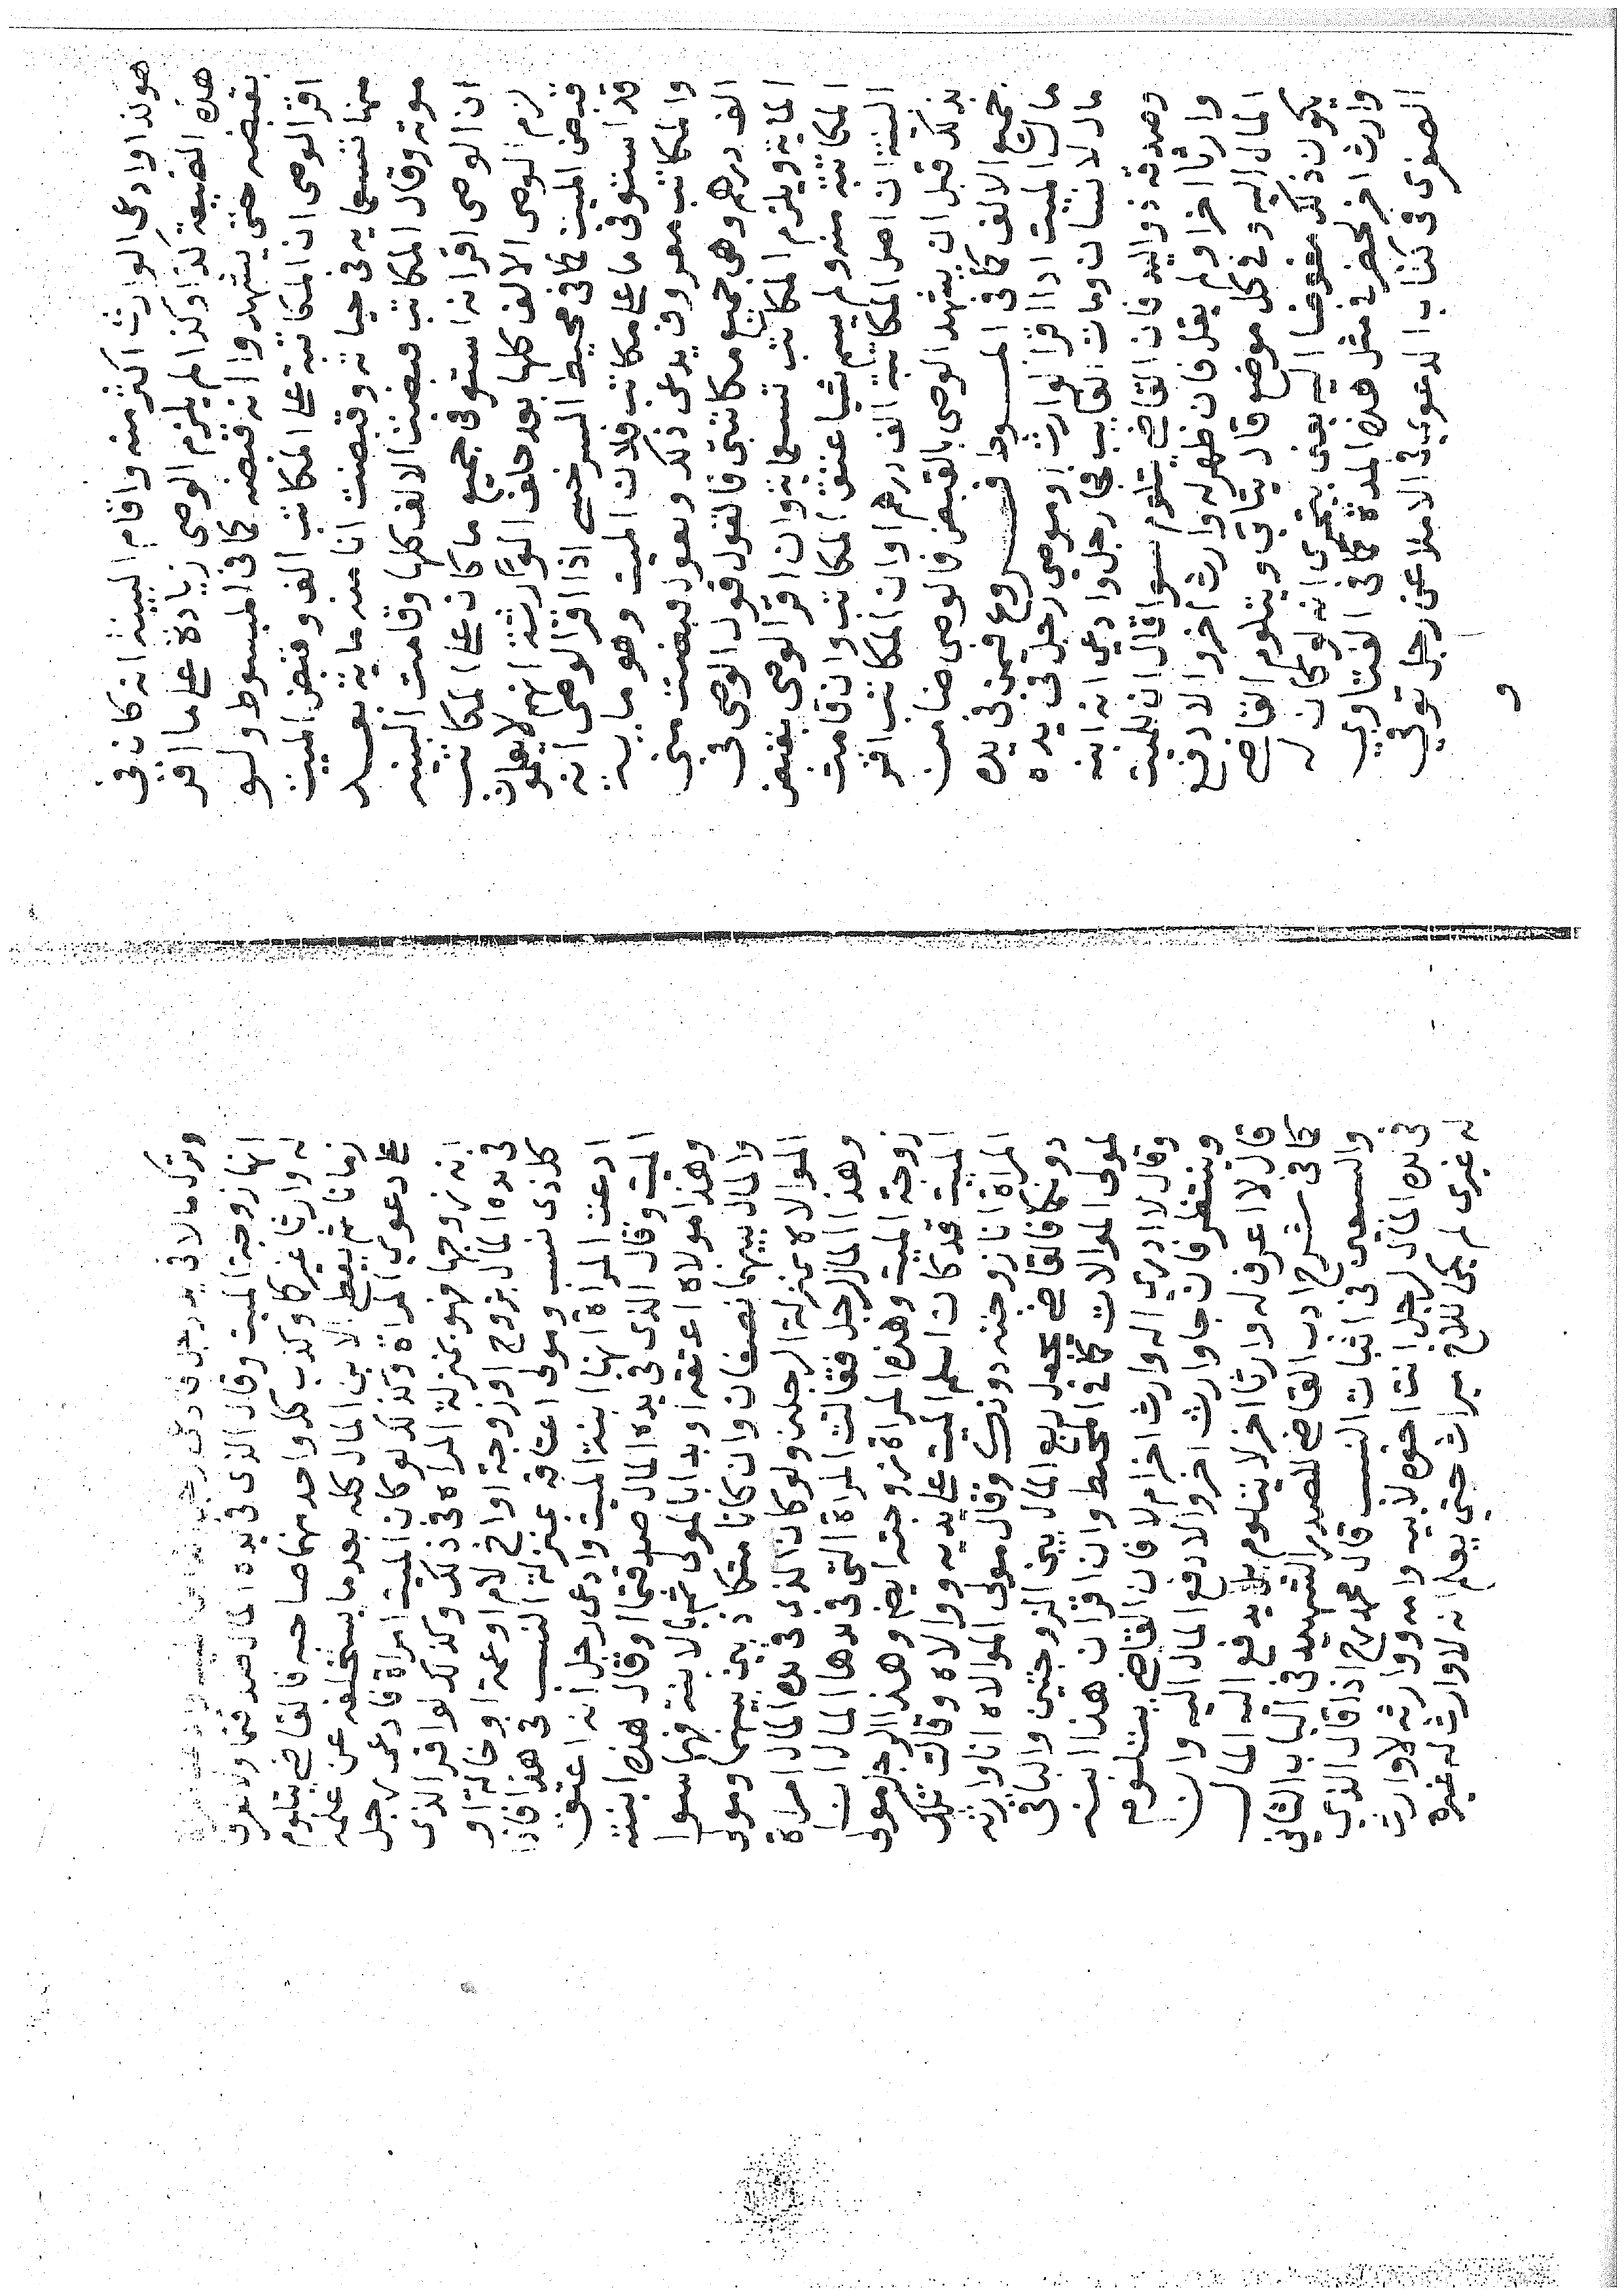 هونذا وادعى الوارث اكثر منه واقام البينة انه كان في
هذه الضيعة كذا وكذا لم يلزم الوصى زيادة على ما اقر
بقبضه حتى يشهدوا انه قبضه كما في المبسوط ولو
اقر الوصى ان المكاتبة على المكاتب الف وقبض الميت
منها تسعماية في حياته وقبضت انا منه ماية بعد
موته وقال المكاتب قبضت الالف كلها وقامت البينه
ان الوصى اقر انه استوفى جميع ما كان على المكاتب
لزم الوصى الالف كلها بعد حلف الورثة انهم لا يعلمون
قبض الميت كما في محيط السرخسي اذا اقر الوصى انه
قد استوفى ما على مكاتب فلان الميت وهو ماية
والمكاتب معروف يدعى ذلك ويقول قبضت منى
الف درهم وهى جميع مكاتبتى فالقول قول الوصى في
الماية ويلزم المكاتب تسعماية وان اقر الوصى بقبض
المكاتبة منه ولم يسم شيا عتق المكاتب وان قامت
البينة ان اصل المكاتبة الف درهم او ان المكاتب اقر
بذلك قبل ان يشهد الوصى بالقبض فالوصى ضامن
جميع الالف كما في المبسوط فروع فيمن في يده
مال الميت اذا اقر لوارث او موصى رجل في يده
مال لانسان ومات الغايب فجا رجل وادعى انه ابنه
وصدقه ذو اليد فان القاضي يتلوم سوا قال ان للميت
وارثا اخر او لم يقل فان ظهر له وارث اخر والا دفع
المال اليه وفي كل موضع قال يتانى ويتلوم القاضي
يكون ذلك مفوضا اليه يعنى يتحرى انه لو كان له
وارث اخر لحضر في مثل هذه المدة كما في الفتاوي
الصغرى في كتاب الدعوى في الاملا عن رجل توفي
و
وترك مالا في يد رجل فادعى رجل
انها زوجة الميت وقال الذى في يده المال صدقتما ولا ندرى
له وارثا غيركما وكذب كل واحد منهما صاحبه فالقاضي يتلوم
زمانا ثم يعطى الابن المال كله بعد ما يستحلفه عن علمه
على دعوي المراة وكذلك لو كان الميت امراة فادعى رجل
انه زوجها فهو بمنزلة المراة في ذلك وكذلك لو اقر الذى
في يده المال بزوج او زوجة او اخ لام او عمة او خالة او
كل ذى نسب ومولى اعتاقه بمنزلة النسب في هذا فاذا
ادعت المراة انها ابنة الميت وادعى رجل انه اعتق
الميت وقال الذى في يده المال صدقتما او قال هذه ابنته
وهذا مولاه اعتقه او بدا بالمولى ثم بالابنة فهما سوا
والمال بينهما نصفان وان كانا متكاذبين بينهما ومولى
الموالاة بمنزلة الرجلين ولو كان الذى في يده المال امراة
وهذا المال لرجل فقالت المراة التى في يدها المال انا
زوجة الميت وهذه المراة زوجته ايضا وهذا الرجل مولى
الميت قد كان اسلم الميت على يديه ووالاه وقالت تلك
المراة انا زوجته دونك وقال مولى الموالاه انا وارثه
دونكما فالقاضي يجعل ربع المال بين الزوجتين والباقي
لمولى الموالات كما في المحيط وان اقر ان هذا ابنه
وقال لا ادري اله وارث اخر ام لا فان القاضي يتلوم
وينتظر فان جا وارث اخر والا دفع المال اليه وان
قال لا اعرف له وارثا اخر لا يتلوم بل يدفع اليه المال
كما في شرح ادب القاضي للصدر الشهيد في الباب الثاني
والسبعين في اثبات النسب قال محمد رح اذا قال الذى
في يده المال لرجل انت اخوه لابيه وامه ووارثه لا وارث
له غيرى لم يكن للاخ ميراث حتى يعلم انه لا وارث له غيره